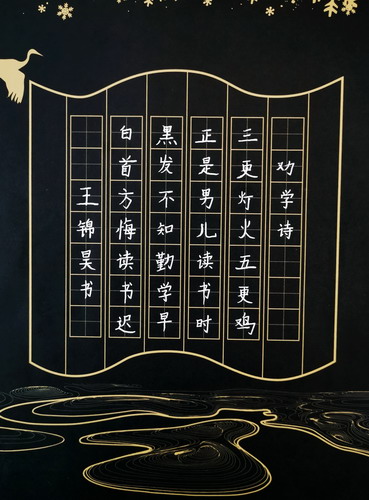 劝学诗
三更灯火五更鸡
正是男儿读书时
黑发不知勤学早
白首方悔读书迟
王锦昊书